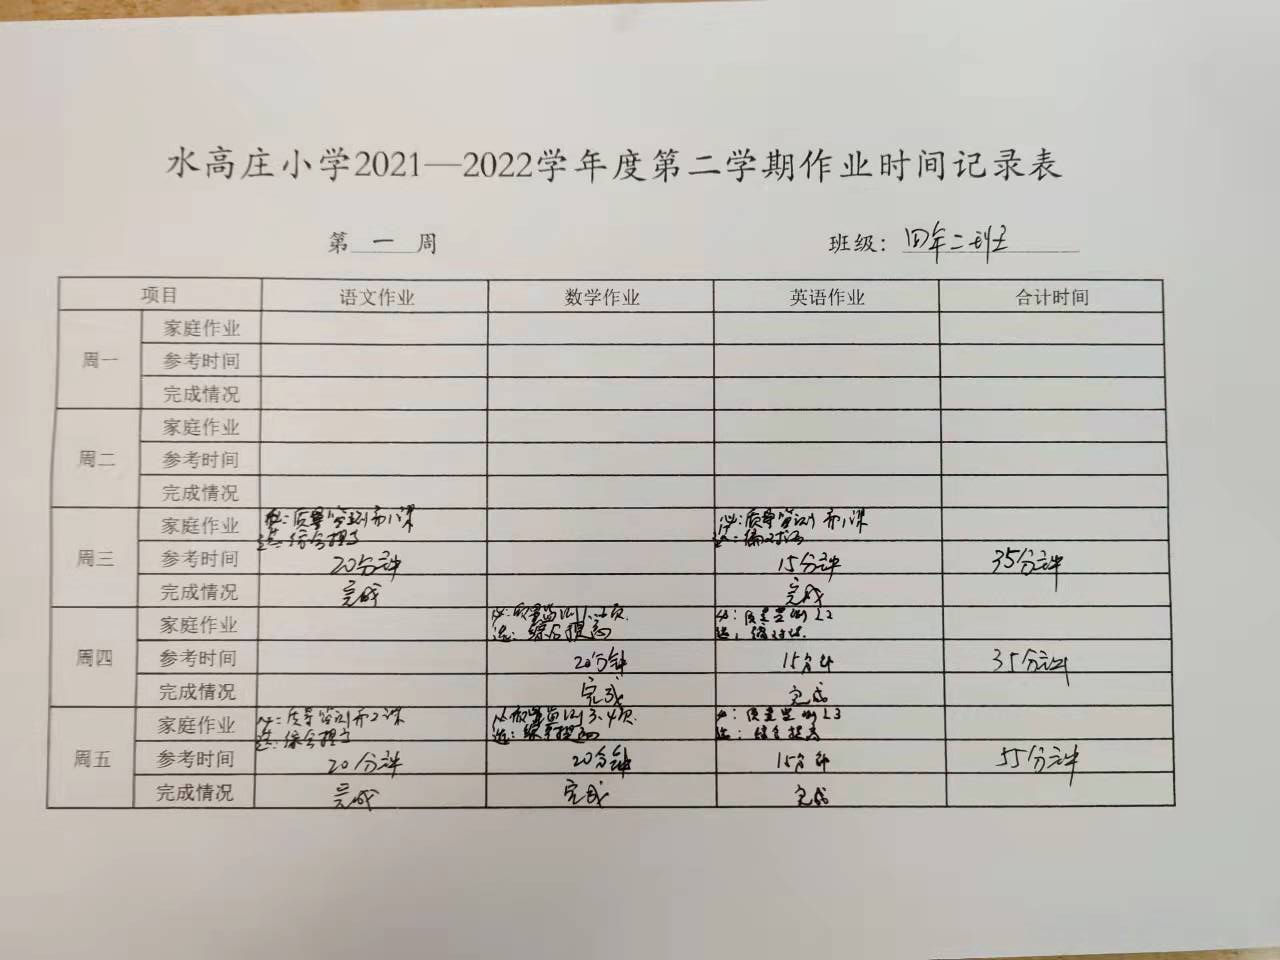 水高庄小学2021—2022学年度第二学期作业时间记录表
第 一 周 班级：四年二班
项目 语文作业 数学作业 英语作业 合计时间
周一
家庭作业
参考时间
完成情况
周二
家庭作业
参考时间
完成情况
周三
家庭作业 必：质量监测第1课 必：质量监测第1课
选：综合提高 选：编对话
参考时间 20分钟 15分钟 35分钟
完成情况 完成 完成
周四
家庭作业 必：质量监测1、2页 必：质量监测L2
选：综合提高 选：编对话
参考时间 20分钟 15分钟 35分钟
完成情况 完成 完成
周五
家庭作业 必：质量监测第2课 必：质量监测3、4页 必：质量监测L3
选：综合提高 选：综合提高 选：综合提高
参考时间 20分钟 20分钟 15分钟 55分钟
完成情况 完成 完成 完成